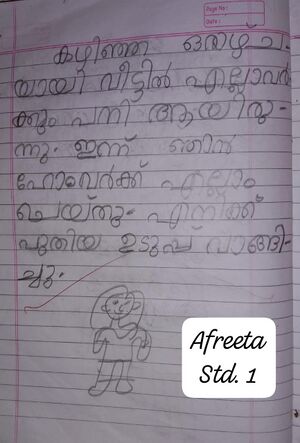 Page No:
Date:
കഴിഞ്ഞ ഒരാഴ്ച
യായി വീട്ടിൽ എല്ലാവർ
ക്കും പനി ആയിരു-
ന്നു. ഇന്ന് ഞാൻ
ഹോംവർക്ക് എല്ലാം
ചെയ്തു. എനിക്ക്
പുതിയ ഉടുപ്പ് വാങ്ങി-
ച്ചു.
Afreeta
Std. 1